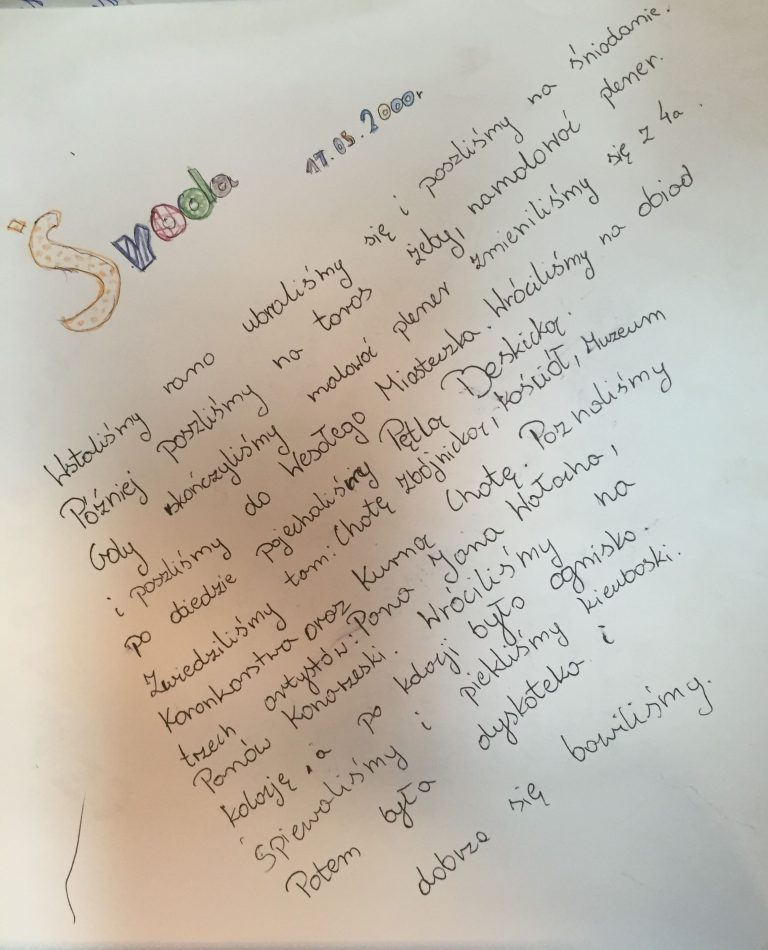 Środa 17.05.2000r
Wstaliśmy rano ubraliśmy się i poszliśmy na śniadanie.
Później poszliśmy na taras żeby, namalować plener.
Gdy skończyliśmy malować plener zmieniliśmy się z 4a.
i poszliśmy do Wesołego Miasteczka. Wróciliśmy na obiad
po obiedzie pojechaliśmy Pętlą Beskicką.
Zwiedziliśmy tam: Chatę zbójnicką, kościół, Muzeum
Koronkarstwa oraz Kurną Chatę. Poznaliśmy
trzech artystów: Pana Jana Wałacha,
Panów Konarzeski. Wróciliśmy na
kolację, a po kolacji było ognisko.
Śpiewaliśmy i piekliśmy kiełbaski.
Potem była dyskoteka i
dobrze się bawiliśmy.